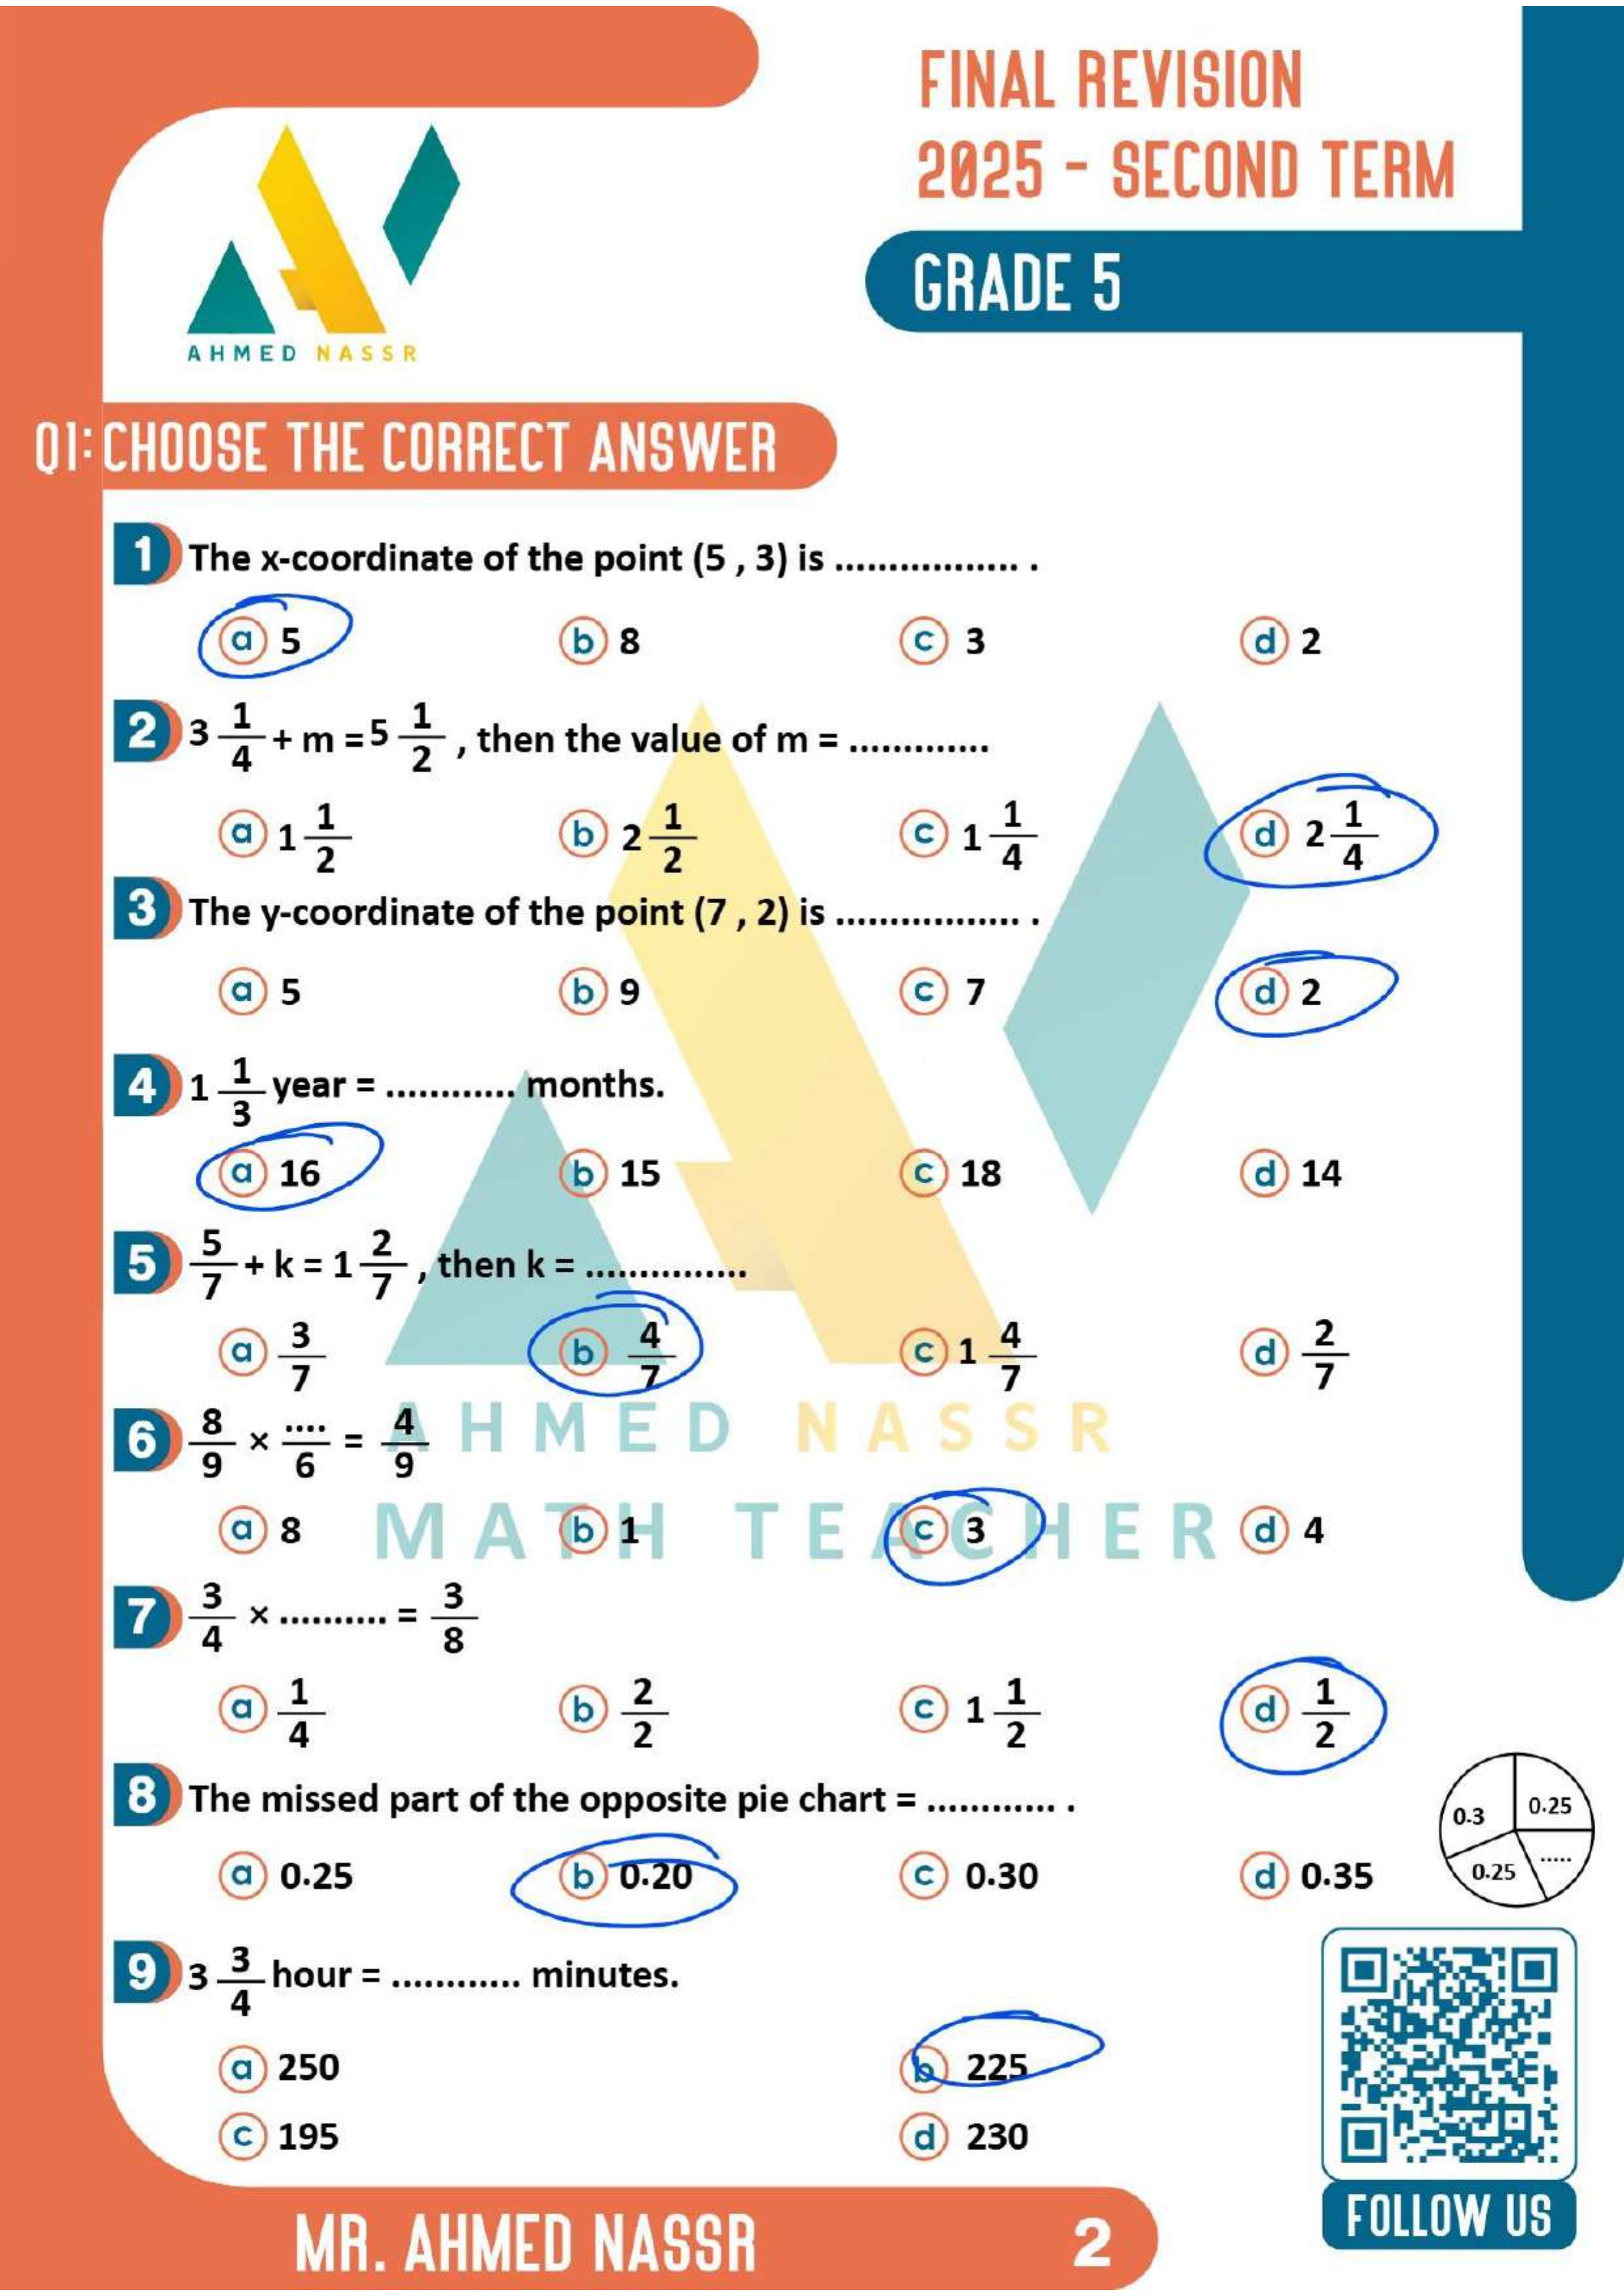 FINAL REVISION
2025 - SECOND TERM
GRADE 5
AHMED NASSR
Q1: CHOOSE THE CORRECT ANSWER
1 The x-coordinate of the point (5 , 3) is ................. .
a 5 b 8 c 3 d 2
2 3 1/4 + m = 5 1/2 , then the value of m = .............
a 1 1/2 b 2 1/2 c 1 1/4 d 2 1/4
3 The y-coordinate of the point (7 , 2) is ................. .
a 5 b 9 c 7 d 2
4 1 1/3 year = ............ months.
a 16 b 15 c 18 d 14
5 5/7 + k = 1 2/7 , then k = ...............
a 3/7 b 4/7 c 1 4/7 d 2/7
AHMED NASSR
6 8/9 × ..../6 = 4/9
MATH TEACHER
a 8 b 1 c 3 d 4
7 3/4 × .......... = 3/8
a 1/4 b 2/2 c 1 1/2 d 1/2
8 The missed part of the opposite pie chart = ............ .
0.3 0.25
0.25 .....
a 0.25 b 0.20 c 0.30 d 0.35
9 3 3/4 hour = ............ minutes.
a 250 b 225
c 195 d 230
FOLLOW US
MR. AHMED NASSR 2